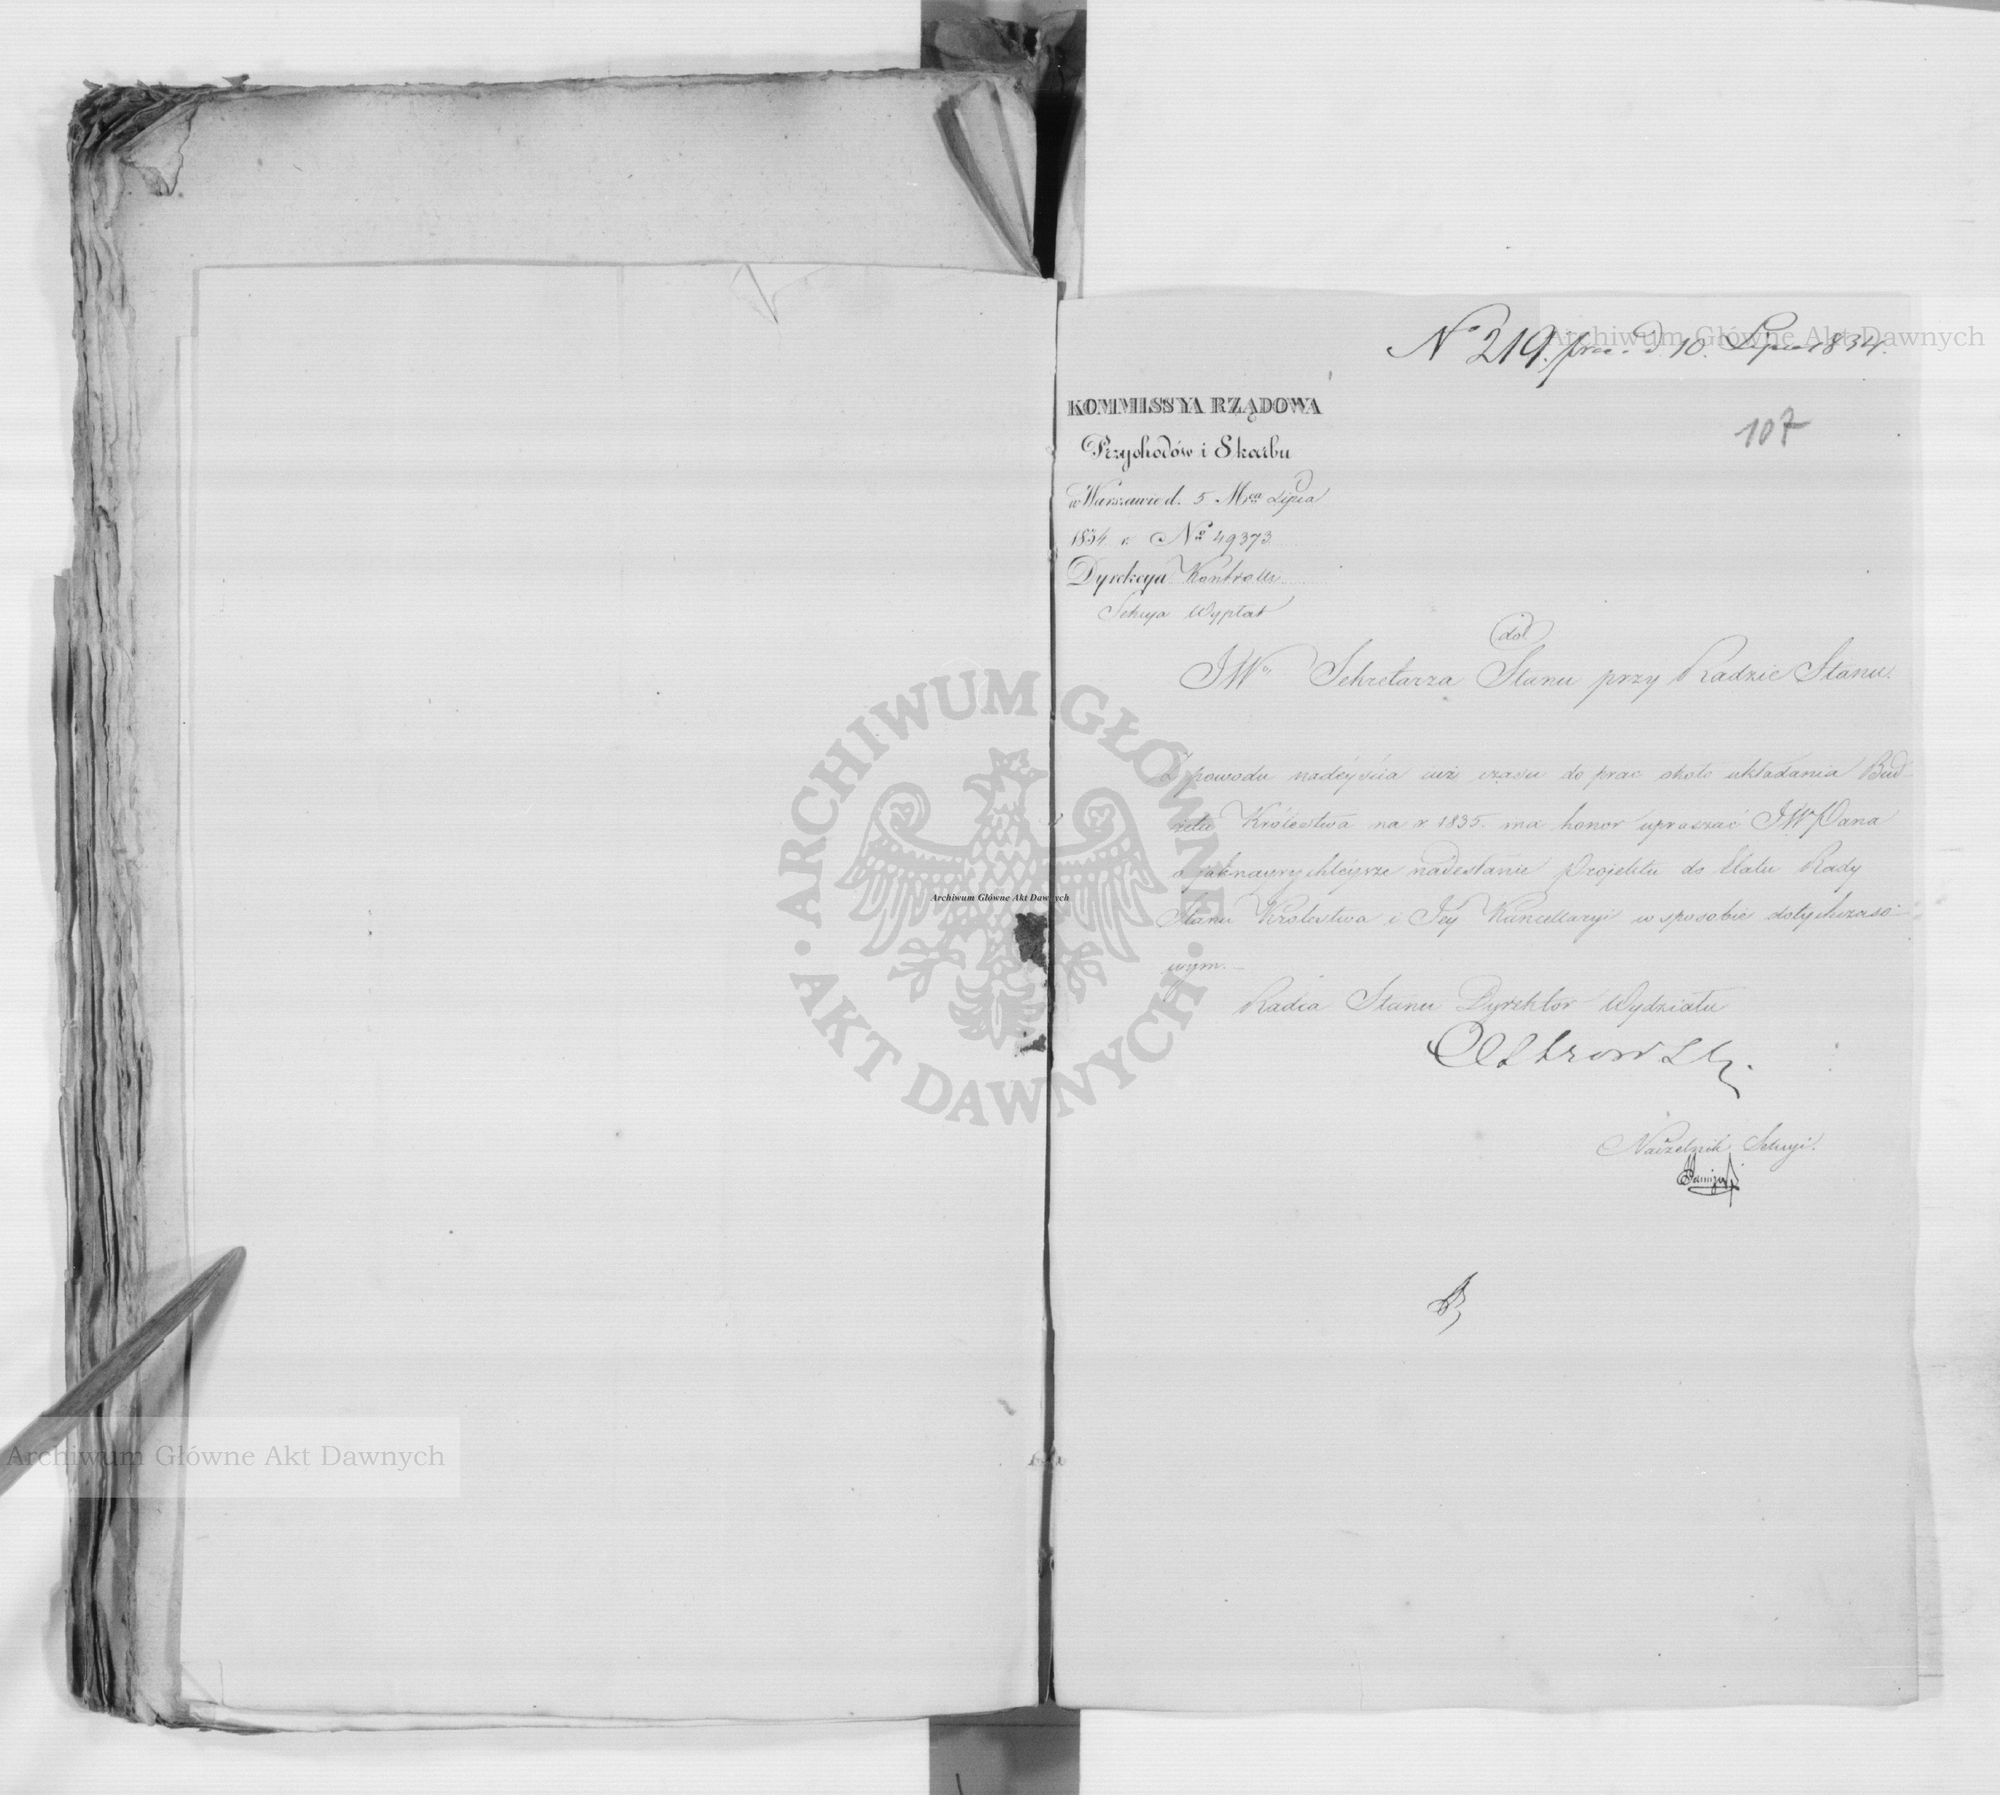 No 219. prez. d. 10. Lipca 1834.
107
KOMMISSYA RZĄDOWA
Przychodów i Skarbu
w Warszawie d. 5 Mca Lipca
1834 r. No 49373
Dyrekcya Kontrolli
Sekcya Wypłat
do
JWo Sekretarza Stanu przy Radzie Stanu.
Z powodu nadeyścia już czasu do prac około układania Bud-
żetu Królestwa na r 1835. ma honor upraszać JW Pana
o jaknayrychleysze nadesłanie Projektu do Etatu Rady
Stanu Królestwa i Jey Kancellaryi w sposobie dotychczaso-
wym.
Radca Stanu Dyrektor Wydziału
Ostrowski
Naczelnik Sekcyi.
ARCHIWUM GŁÓWNE
AKT DAWNYCH
Archiwum Główne Akt Dawnych
Archiwum Główne Akt Dawnych
Archiwum Główne Akt Dawnych